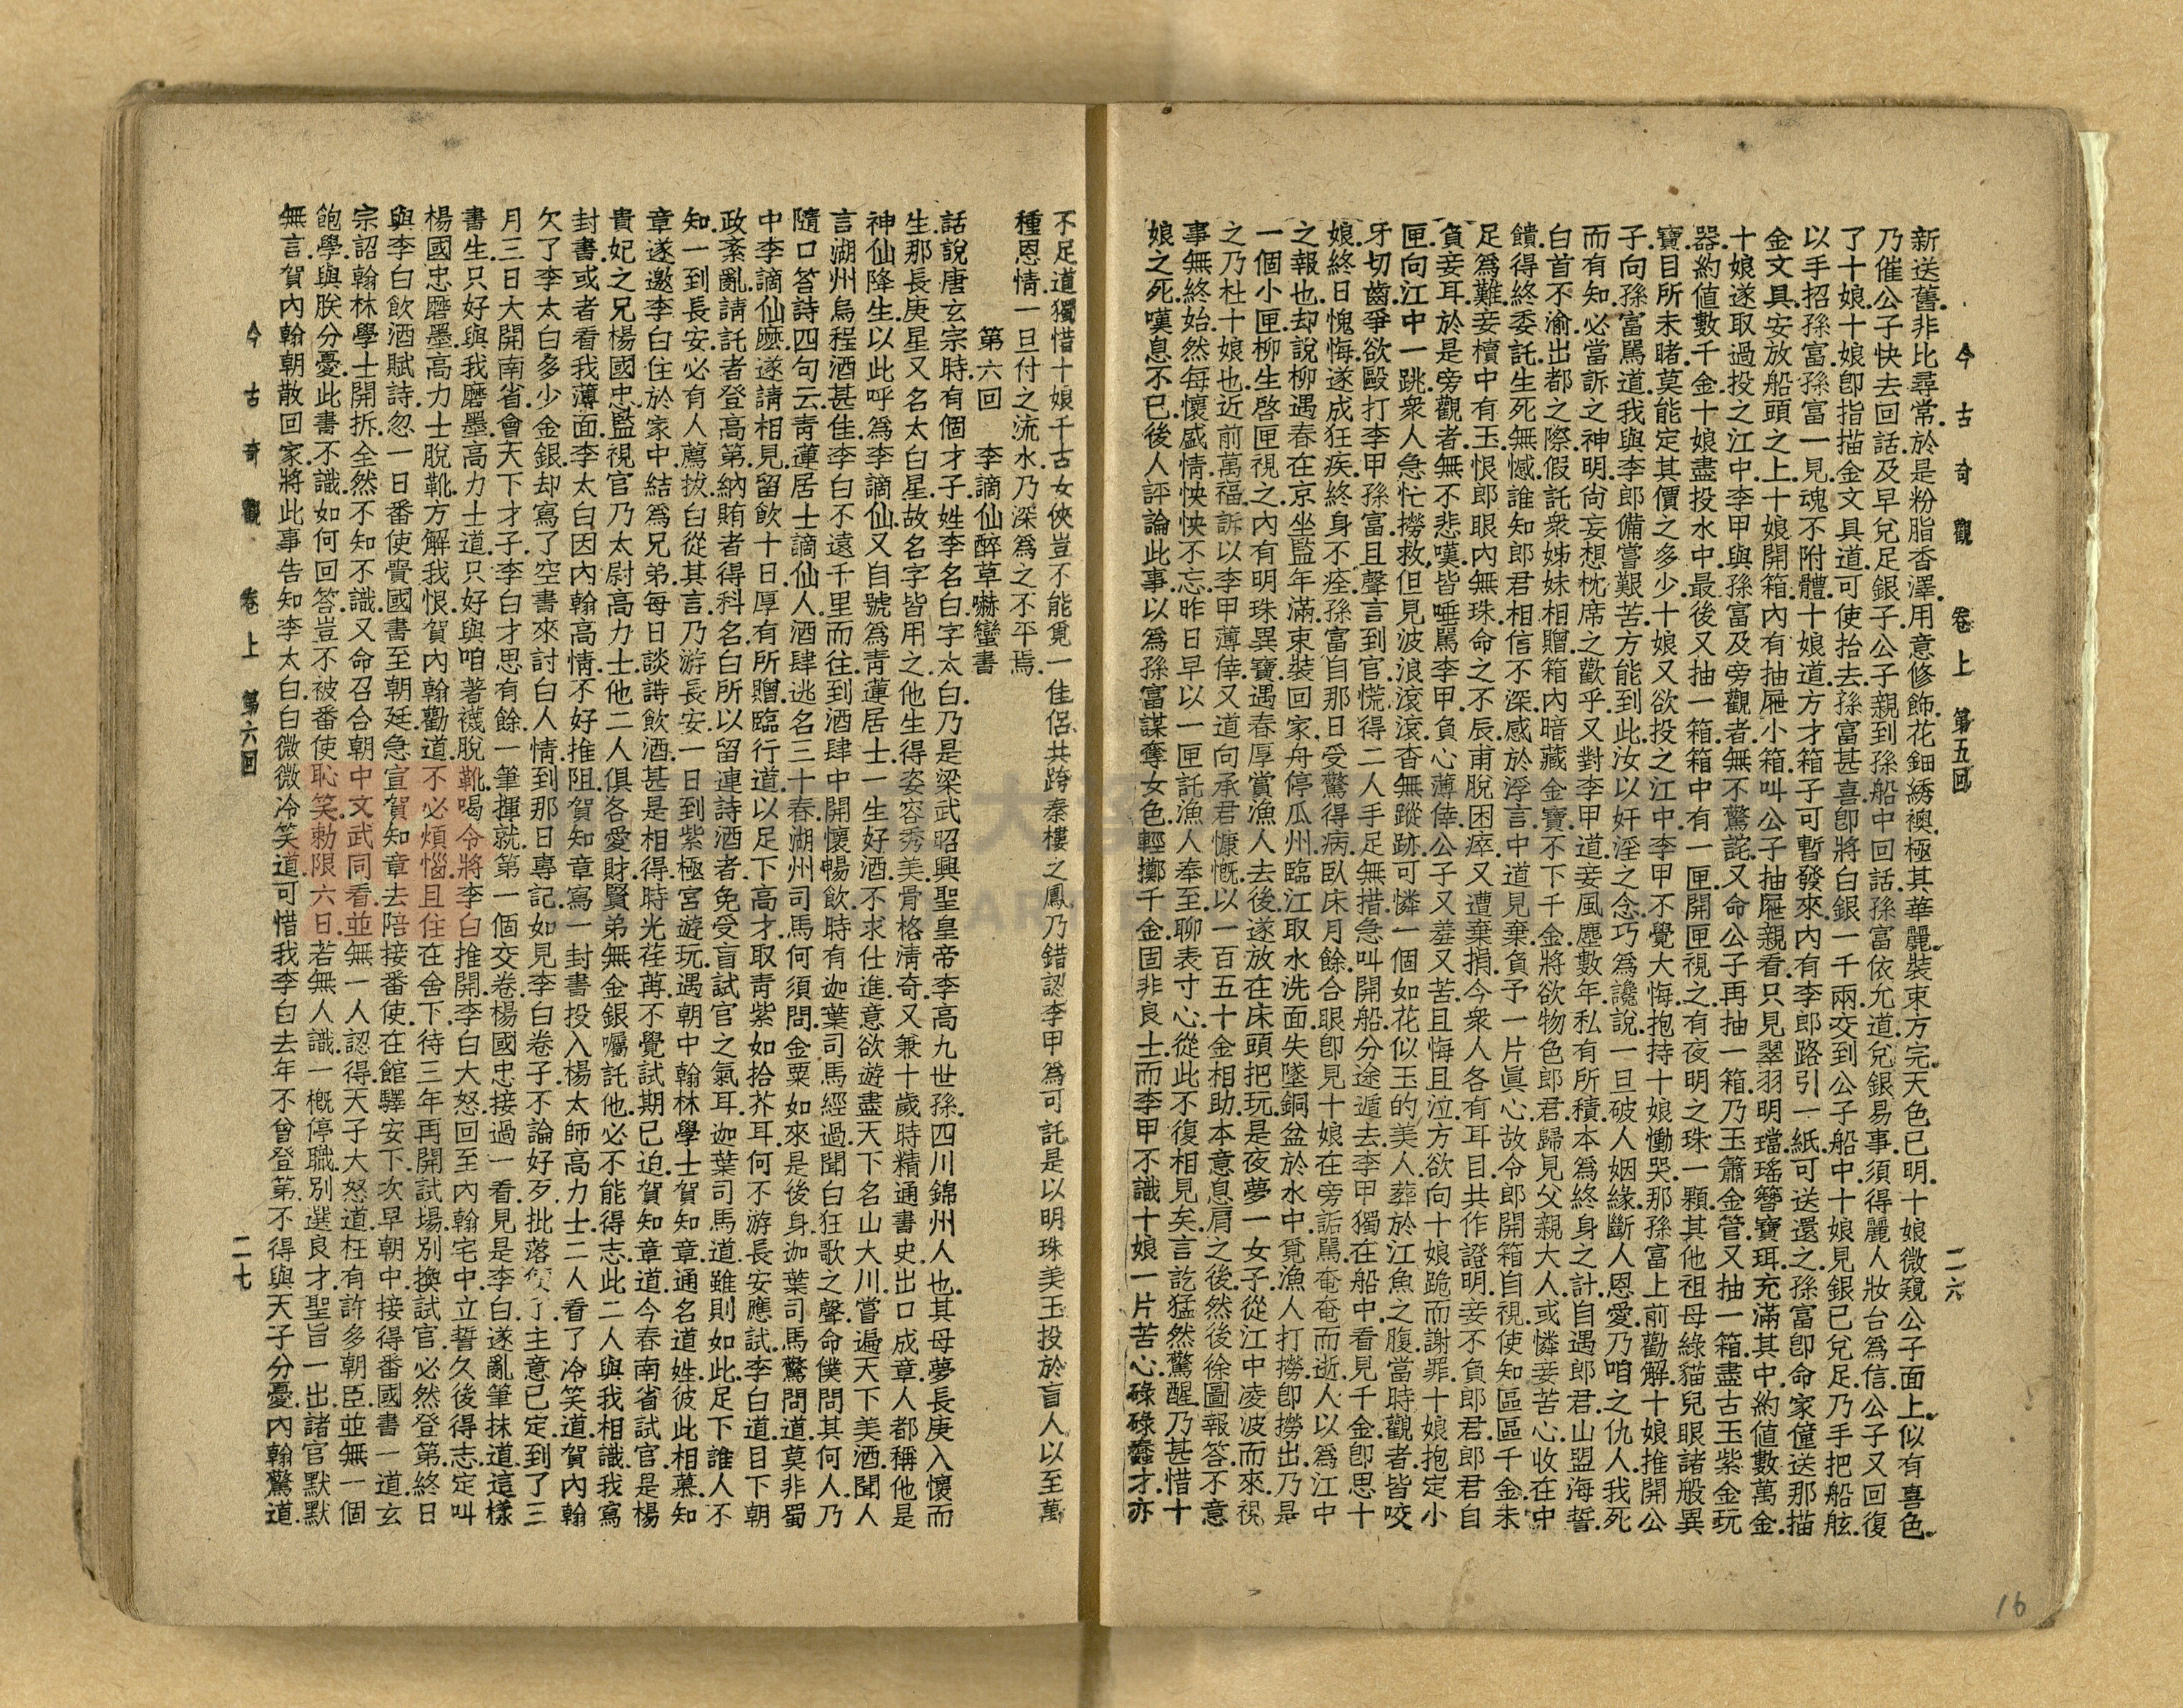 今古奇觀　卷上　第五回　二六
新送舊.非比尋常.於是粉脂香澤.用意修飾.花鈿綉襖.極其華麗.裝束方完.天色已明.十娘微窺公子面上.似有喜色.
乃催公子快去回話.及早兌足銀子.公子親到孫船中回話.孫富依允道.兌銀易事.須得麗人妝台爲信.公子又回復
了十娘.十娘卽指描金文具道.可使抬去.孫富甚喜.卽將白銀一千兩.交到公子船中.十娘見銀已兌足.乃手把船舷.
以手招孫富.孫富一見.魂不附體.十娘道.方才箱子可暫發來.內有李郎路引一紙.可送還之.孫富卽命家僮送那描
金文具.安放船頭之上.十娘開箱.內有抽屜小箱.叫公子抽屜親看.只見翠羽明璫.瑤簪寶珥.充滿其中.約値數萬金.
十娘遂取過投之江中.李甲與孫富及旁觀者.無不驚詫.又命公子再抽一箱.乃玉簫金管.又抽一箱.盡古玉紫金玩
器.約値數千金.十娘盡投水中.最後又抽一箱.箱中有一匣.開匣視之.有夜明之珠一顆.其他祖母綠貓兒眼.諸般異
寶.目所未睹.莫能定其價之多少.十娘又欲投之江中.李甲不覺大悔.抱持十娘慟哭.那孫富上前勸解.十娘推開公
子.向孫富駡道.我與李郎備嘗艱苦.方能到此.汝以奸淫之念.巧爲讒說.一旦破人姻緣.斷人恩愛.乃咱之仇人.我死
而有知.必當訴之神明.尙妄想枕席之歡乎.又對李甲道.妾風塵數年.私有所積.本爲終身之計.自遇郎君.山盟海誓.
白首不渝.出都之際.假託衆姊妹相贈.箱內暗藏金寶.不下千金.將欲物色郎君.歸見父親大人.或憐妾苦心.收在中
饋.得終委託.生死無憾.誰知郎君相信不深.感於浮言.中道見棄.負予一片眞心.故令郎開箱自視.使知區區千金.未
足爲難.妾櫝中有玉.恨郎眼內無珠.命之不辰.甫脫困瘁.又遭棄捐.今衆人各有耳目.共作證明.妾不負郎君.郎君自
負妾耳.於是旁觀者.無不悲嘆.皆唾駡李甲.負心薄倖.公子又羞又苦.且悔且泣.方欲向十娘跪而謝罪.十娘抱定小
匣.向江中一跳.衆人急忙撈救.但見波浪滾滾.杳無蹤跡.可憐一個如花似玉的美人.葬於江魚之腹.當時觀者.皆咬
牙切齒.爭欲毆打李甲孫富.且聲言到官.慌得二人手足無措.急叫開船.分途遁去.李甲獨在船中.看見千金.卽思十
娘.終日愧悔.遂成狂疾.終身不痊.孫富自那日受驚得病.臥床月餘.合眼卽見十娘在旁詬駡.奄奄而逝.人以爲江中
之報也.却說柳遇春在京.坐監年滿.束裝回家.舟停瓜州.臨江取水洗面.失墜銅盆於水中.覓漁人打撈.卽撈出.乃是
一個小匣.柳生啓匣視之.內有明珠異寶.遇春厚賞漁人去後.遂放在床頭把玩.是夜夢一女子.從江中凌波而來.視
之乃杜十娘也.近前萬福.訴以李甲薄倖.又道向承君慷慨.以一百五十金相助.本意息肩之後.然後徐圖報答.不意
事無終始.然每懷感情.怏怏不忘.昨日早以一匣託漁人奉至.聊表寸心.從此不復相見矣.言訖.猛然驚醒.乃甚惜十
娘之死.嘆息不已.後人評論此事.以爲孫富謀奪女色.輕擲千金.固非良士.而李甲不識十娘一片苦心.碌碌蠢才.亦
不足道.獨惜十娘千古女俠.豈不能覓一佳侶.共跨秦樓之鳳.乃錯認李甲爲可託.是以明珠美玉.投於盲人.以至萬
種恩情.一旦付之流水.乃深爲之不平焉.
第六回　李謫仙醉草嚇蠻書
話說唐玄宗時.有個才子.姓李.名白.字太白.乃是梁武昭興聖皇帝李高九世孫.四川錦州人也.其母夢長庚入懷而
生.那長庚星又名太白星.故名字皆用之.他生得姿容秀美.骨格淸奇.又兼十歲時精通書史.出口成章.人都稱他是
神仙降生.以此呼爲李謫仙.又自號爲靑蓮居士.一生好酒.不求仕進.意欲遊盡天下名山大川.嘗遍天下美酒.聞人
言湖州烏程酒甚佳.李白不遠千里而往.到酒肆中.開懷暢飲.時有迦葉司馬經過.聞白狂歌之聲.命僕問其何人.乃
隨口答詩四句云.靑蓮居士謫仙人.酒肆逃名三十春.湖州司馬何須問.金粟如來是後身.迦葉司馬驚問道.莫非蜀
中李謫仙麽.遂請相見.留飲十日.厚有所贈.臨行道.以足下高才.取靑紫如拾芥耳.何不游長安應試.李白道.目下朝
政紊亂.請託者登高第.納賄者得科名.白所以留連詩酒者.免受盲試官之氣耳.迦葉司馬道.雖則如此.足下誰人不
知.一到長安.必有人薦拔.白從其言.乃游長安.一日到紫極宮遊玩.遇朝中翰林學士賀知章.通名道姓.彼此相慕.知
章遂邀李白住於家中.結爲兄弟.每日談詩飲酒.甚是相得.時光荏苒.不覺試期已迫.賀知章道.今春南省試官.是楊
貴妃之兄楊國忠.監視官乃太尉高力士.他二人俱各愛財.賢弟無金銀囑託他.必不能得志.此二人與我相識.我寫
封書.或者看我薄面.李太白因內翰高情.不好推阻.賀知章寫一封書.投入楊太師高力士二人看了.冷笑道.賀內翰
欠了李太白多少金銀.却寫了空書來討白人情.到那日專記如見李白卷子.不論好歹.批落便了.主意已定.到了三
月三日.大開南省.會天下才子.李白才思有餘.一筆揮就.第一個交卷.楊國忠接過一看.見是李白.遂亂筆抹道.這樣
書生.只好與我磨墨.高力士道.只好與咱著襪脫靴.喝令將李白推開.李白大怒.回至內翰宅中.立誓久後得志.定叫
楊國忠磨墨.高力士脫靴.方解我恨.賀內翰勸道.不必煩惱.且住在舍下.待三年再開試場.別換試官.必然登第.終日
與李白飲酒賦詩.忽一日番使賫國書至.朝廷急宣賀知章去陪接番使.在館驛安下.次早朝中.接得番國書一道.玄
宗詔翰林學士開拆.全然不知不識.又命召合朝中文武同看.並無一人認得.天子大怒道.枉有許多朝臣.並無一個
飽學.與朕分憂.此書不識.如何回答.豈不被番使恥笑.勅限六日.若無人識.一槪停職.別選良才.聖旨一出.諸官默默
無言.賀內翰朝散回家.將此事告知李太白.白微微冷笑道.可惜我李白去年不曾登第.不得與天子分憂.內翰驚道.
今古奇觀　卷上　第六回　二七
16